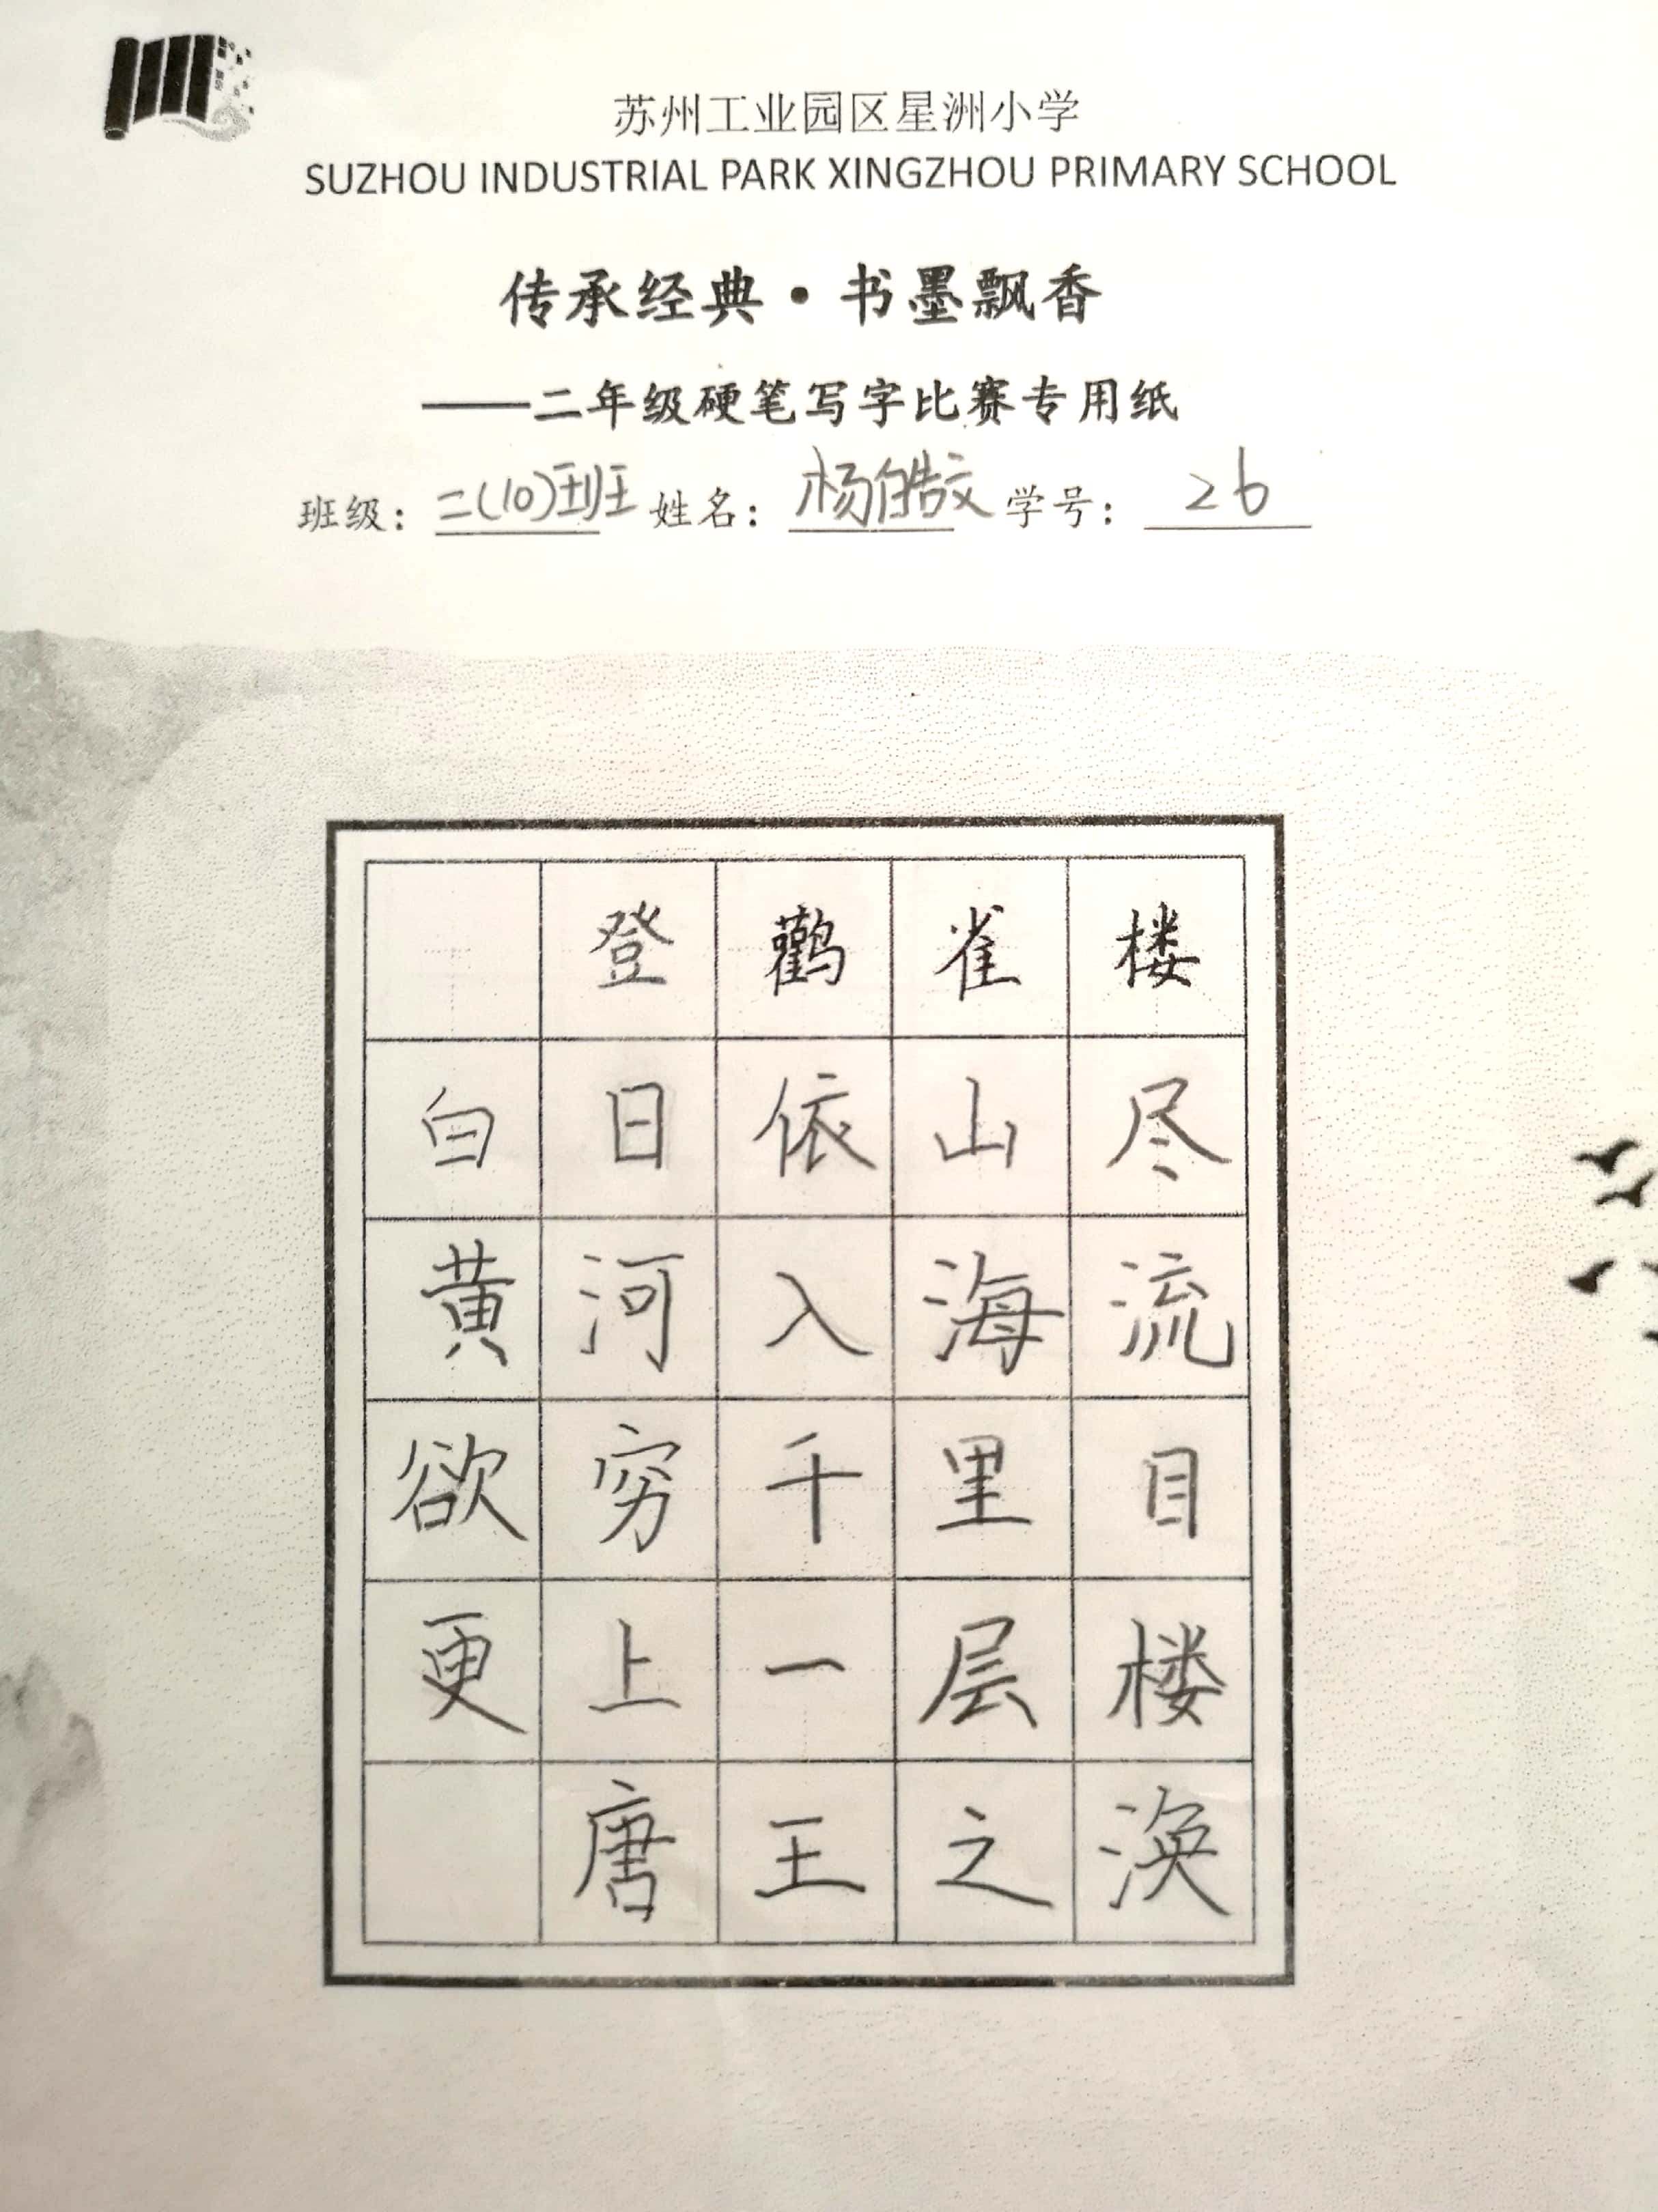 苏州工业园区星洲小学
SUZHOU INDUSTRIAL PARK XINGZHOU PRIMARY SCHOOL
传承经典·书墨飘香
——二年级硬笔写字比赛专用纸
班级：二(10)班 姓名：杨皓文 学号：26
登鹳雀楼
白日依山尽
黄河入海流
欲穷千里目
更上一层楼
唐王之涣